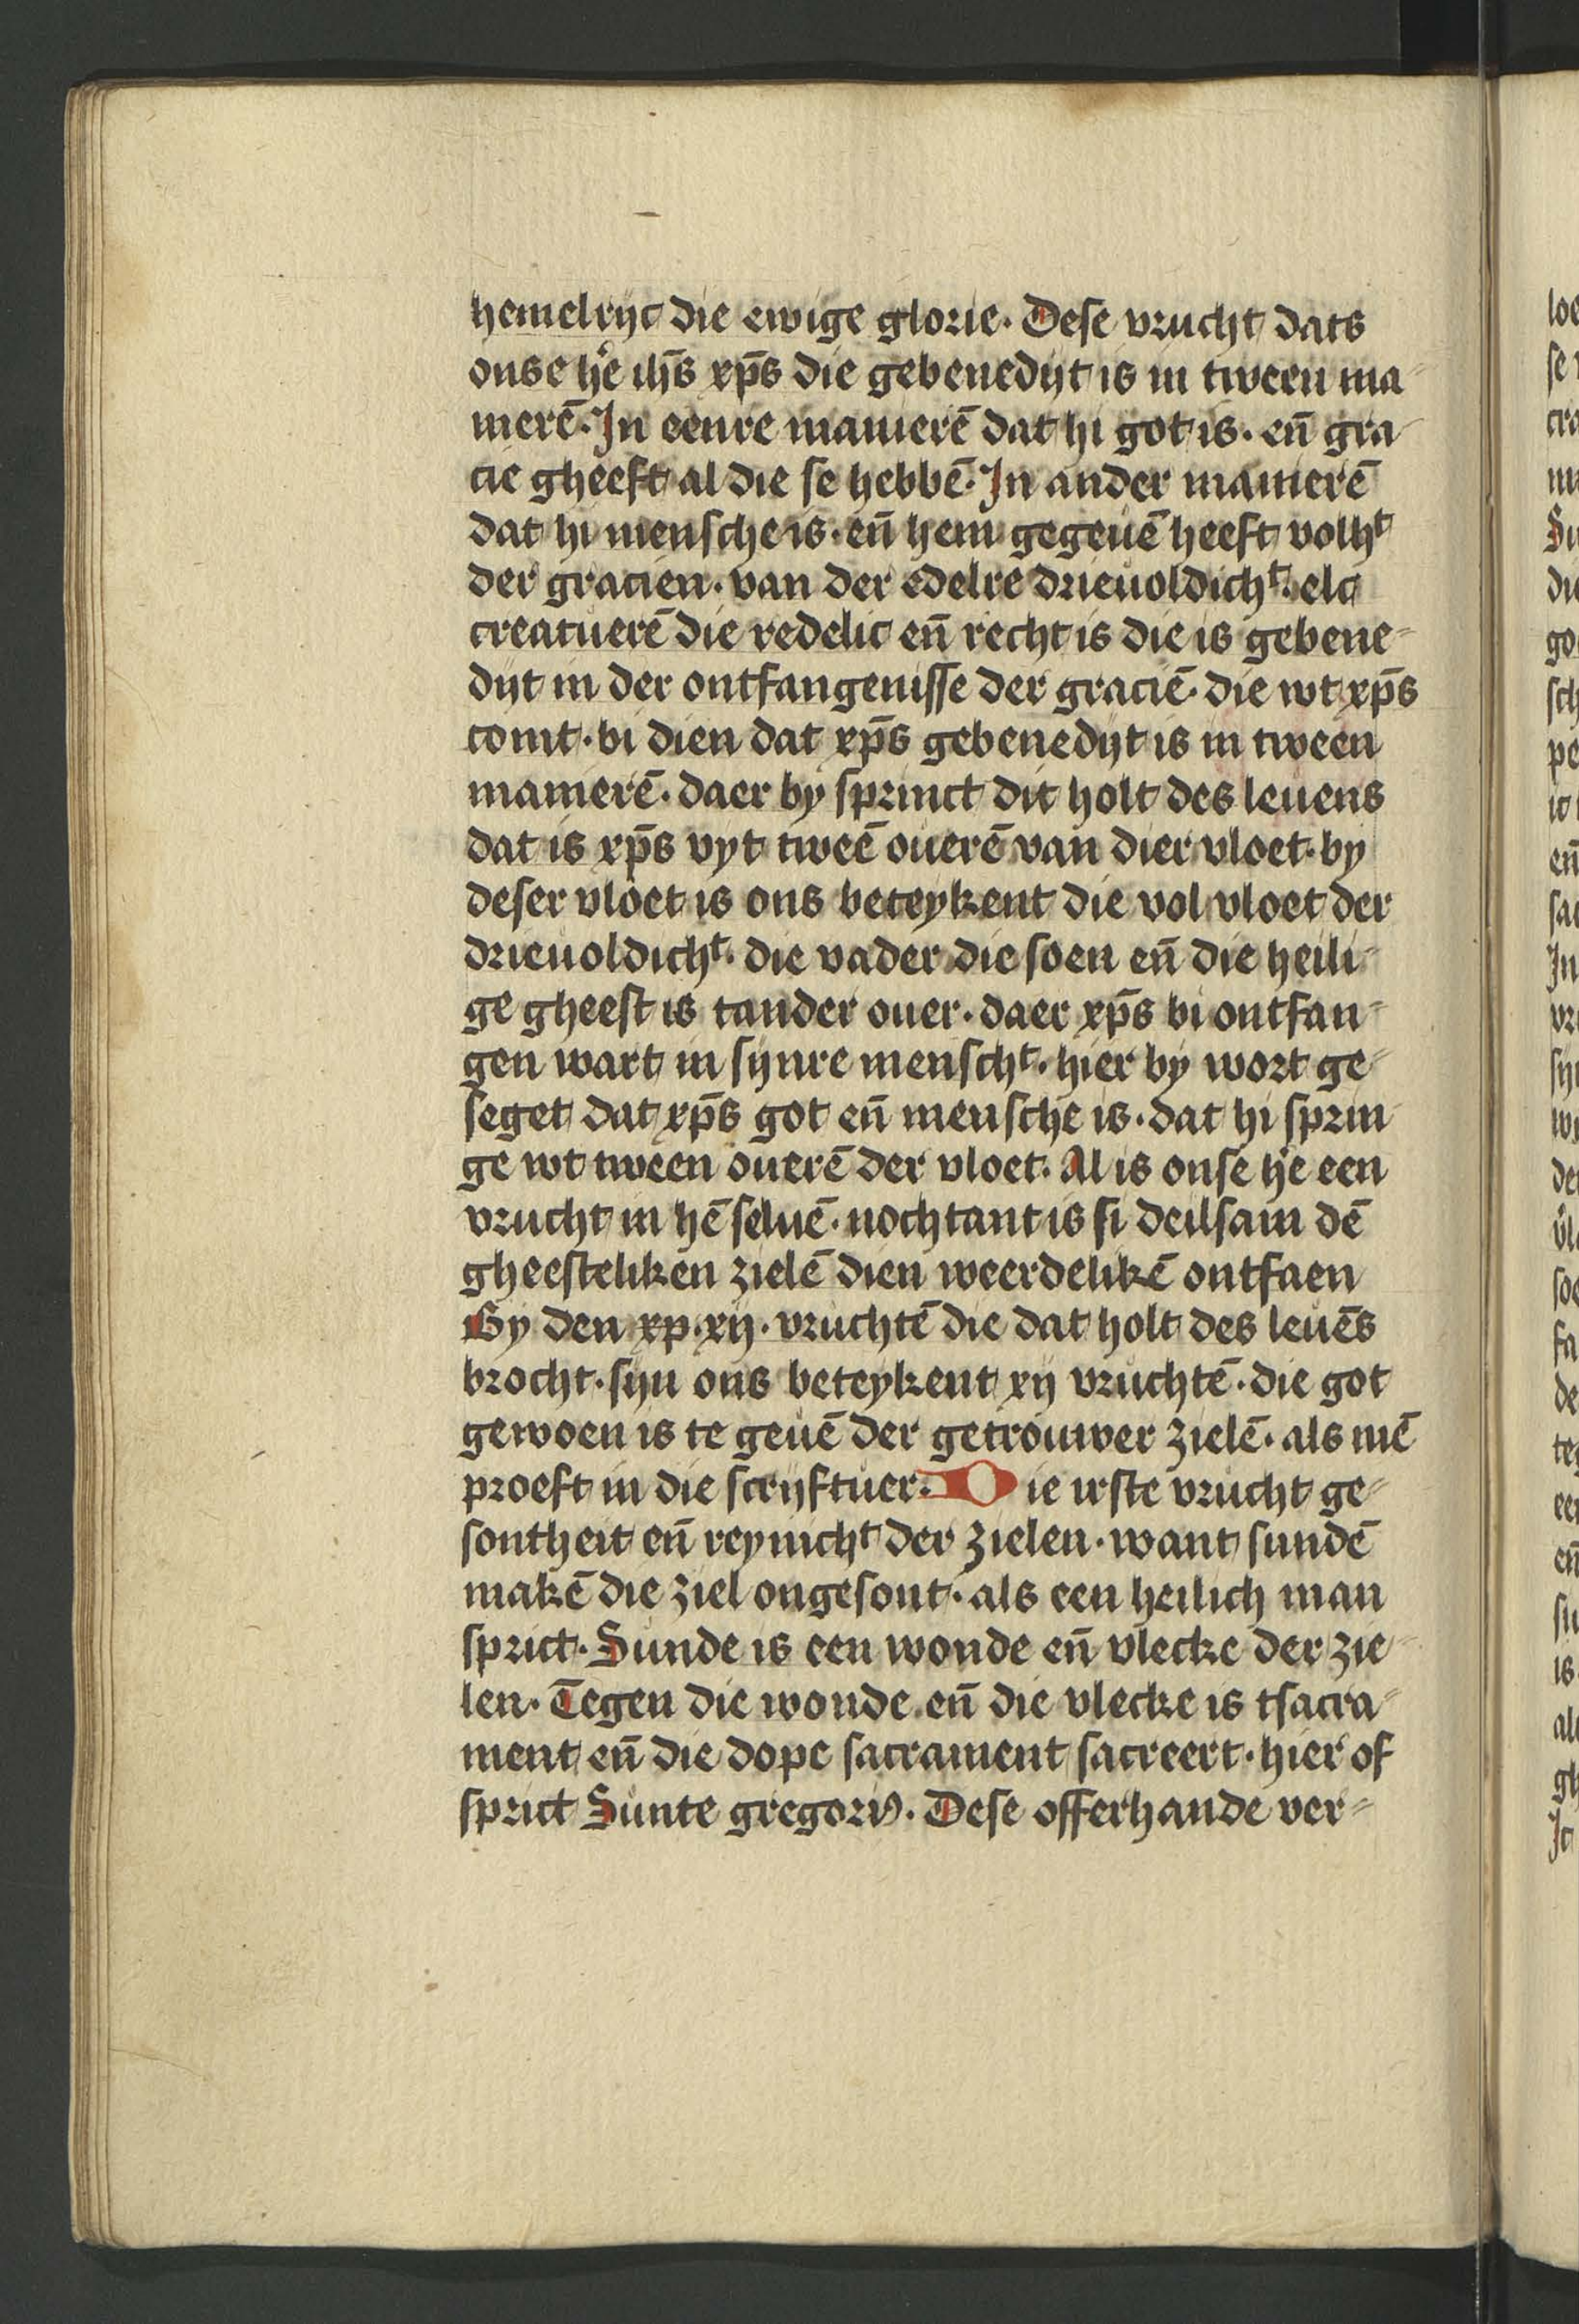 hemelrijc die ewige glorie. Dese vrucht dats
onse hẽ ihs̄ xp̄s die gebenedijt is in tween ma
nierē. In eenre manierē dat hi got is. en̄ gra-
cie gheeft al die se hebbē. In ander manierē
dat hi mensche is. en̄ hem gegeuē heeft volhᵗ
der gracien. van der edelre drieuoldichᵗ. elc
creatuerē die redelic en̄ recht is die is gebene-
dijt in der ontfangenisse der graciē. die wt xp̄s
comt. bi dien dat xp̄s gebenedijt is in tween
manierē. daer by sprinct dit holt des leuens
dat is xp̄s vyt tweē ouerē van dier vloet. by
deser vloet is ons beteykent die vol vloet der
drieuoldichᵗ. die vader die soen en̄ die heili-
ge gheest is tander ouer. daer xp̄s bi ontfan-
gen wart in sijnre menschᵗ. hier by wort ge-
seget dat xp̄s got en̄ mensche is. dat hi sprin
ge wt tween ouerē der vloet. Al is onse hẽ een
vrucht in hē seluē. nochtant is si deilsam dē
gheesteliken zielē dien weerdelikē ontfaen
By den xp. xij. vruchtē die dat holt des leuēs
brocht. sijn ons beteykent xij vruchtē. die got
gewoen is te geuē der getrouwer zielē. als mē
proeft in die scrijftuer. Die irste vrucht ge-
sontheit en̄ reynichᵗ der zielen. want sundē
makē die ziel ongesont. als een heilich man
sprict. Sunde is een wonde en̄ vlecke der zie-
len. Tegen die wonde en̄ die vlecke is tsacra-
ment en̄ die dope sacrament sacreert. hier of
sprict Sunte gregoriꝰ. Dese offerhande ver-